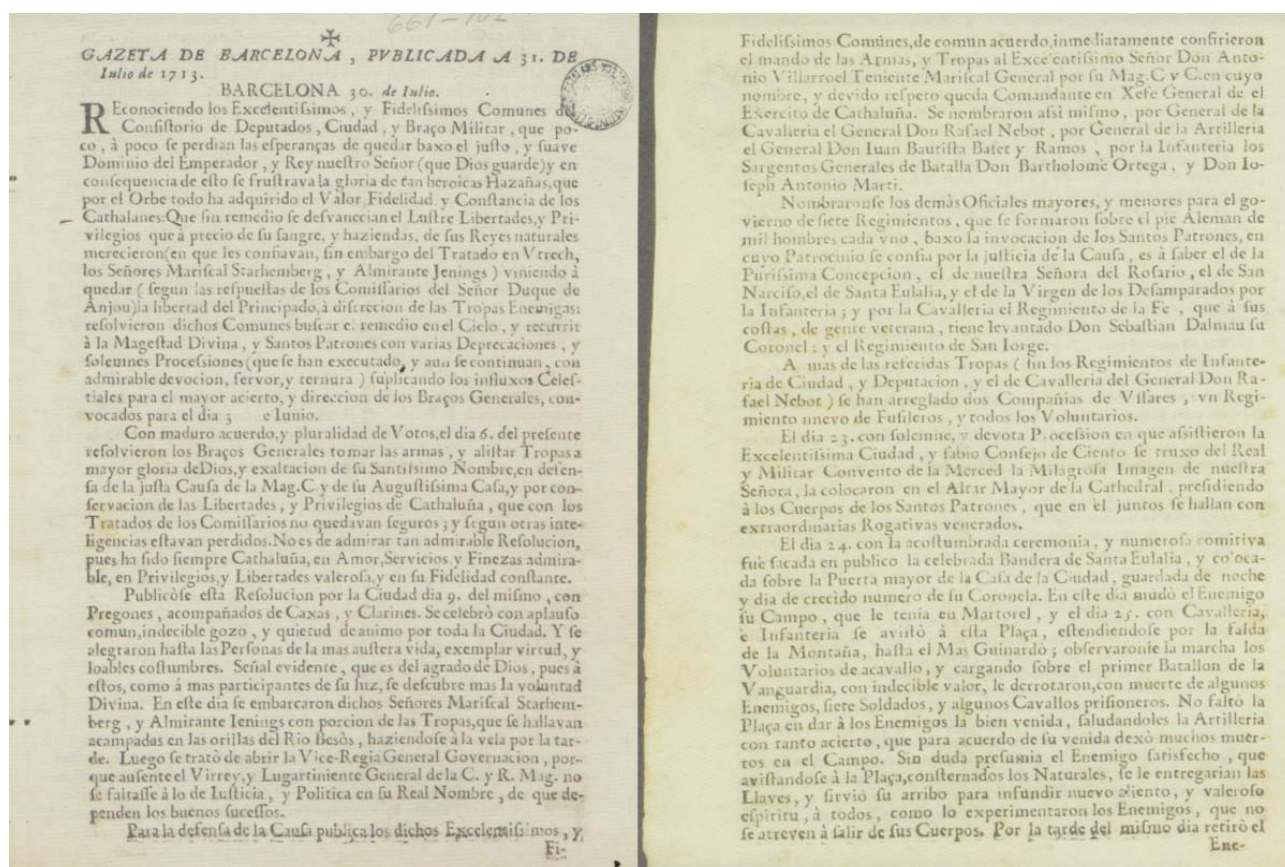 661-102
GAZETA DE BARCELONA, PVBLICADA A 31. DE
Iulio de 1713.
BARCELONA 30. de Iulio.
REconociendo los Excelentiſsimos, y Fideliſsimos Comunes del
Conſiſtorio de Deputados, Ciudad, y Braço Militar, que po-
co, à poco ſe perdian las eſperanças de quedar baxo el juſto, y ſuave
Dominio del Emperador, y Rey nueſtro Señor (que Dios guarde) y en
conſequencia de eſto ſe fruſtrava la gloria de tan heroicas Hazañas, que
por el Orbe todo ha adquirido el Valor, Fidelidad, y Conſtancia de los
Cathalanes: Que ſin remedio ſe deſvanecian el Luſtre Libertades, y Pri-
vilegios que à precio de ſu ſangre, y haziendas, de ſus Reyes naturales
merecieron (en que les confiavan, ſin embargo del Tratado en Vtrech,
los Señores Mariſcal Starhemberg, y Almirante Jenings) viniendo à
quedar (ſegun las reſpueſtas de los Comiſſarios del Señor Duque de
Anjou) la libertad del Principado, à diſcrecion de las Tropas Enemigas:
reſolvieron dichos Comunes buſcar e. remedio en el Cielo, y recurrir
à la Mageſtad Divina, y Santos Patrones con varias Deprecaciones, y
ſolemnes Proceſsiones (que ſe han executado, y aun ſe continuan, con
admirable devocion, fervor, y ternura) ſuplicando los influxos Celeſ-
tiales para el mayor acierto, y direccion de los Braços Generales, con-
vocados para el dia 3 e Iunio.
Con maduro acuerdo, y pluralidad de Votos, el dia 6. del preſente
reſolvieron los Braços Generales tomar las armas, y aliſtar Tropas a
mayor gloria de Dios, y exaltacion de ſu Santiſsimo Nombre, en defen-
ſa de la juſta Cauſa de la Mag. C y de ſu Auguſtiſsima Caſa, y por con-
ſervacion de las Libertades, y Privilegios de Cathaluña, que con los
Tratados de los Comiſſarios no quedavan ſeguros; y ſegun otras inte-
ligencias eſtavan perdidos. No es de admirar tan admirable Reſolucion,
pues ha ſido ſiempre Cathaluña, en Amor, Servicios y Finezas admira-
ble, en Privilegios, y Libertades valeroſa, y en ſu Fidelidad conſtante.
Publicòſe eſta Reſolucion por la Ciudad dia 9. del miſmo, con
Pregones, acompañados de Caxas, y Clarines. Se celebrò con aplauſo
comun, indecible gozo, y quietud de animo por toda la Ciudad. Y ſe
alegraron haſta las Perſonas de la mas auſtera vida, exemplar virtud, y
loables coſtumbres. Señal evidente, que es del agrado de Dios, pues à
eſtos, como á mas participantes de ſu luz, ſe deſcubre mas la voluntad
Divina. En eſte dia ſe embarcaron dichos Señores Mariſcal Starhem-
berg, y Almirante Ienings con porcion de las Tropas, que ſe hallavan
acampadas en las orillas del Rio Beſòs, haziendoſe à la vela por la tar-
de. Luego ſe tratò de abrir la Vice-Regia General Governacion, por-
que auſente el Virrey, y Lugartiniente General de la C. y R. Mag. no
ſe faltaſſe à lo de Iuſticia, y Politica en ſu Real Nombre, de que de-
penden los buenos ſuceſſos.
Para la defenſa de la Cauſa publica los dichos Excelentiſsimos, y,
Fi-
Fideliſsimos Comúnes, de comun acuerdo, inmediatamente confirieron
el mando de las Armas, y Tropas al Exce'entiſsimo Señor Don Anto-
nio Villarroel Teniente Mariſcal General por ſu Mag. C y C. en cuyo
nombre, y devido reſpeto queda Comandante en Xefe General de el
Exercito de Cathaluña. Se nombraron aſsi miſmo, por General de la
Cavalleria el General Don Rafael Nebot, por General de la Artilleria
el General Don Iuan Bautiſta Baſet y Ramos, por la Infanteria los
Sargentos Generales de Batalla Don Bartholomè Ortega, y Don Io-
ſeph Antonio Marti.
Nombraronſe los demàs Oficiales mayores, y menores para el go-
vierno de ſiete Regimientos, que ſe formaron ſobre el pie Aleman de
mil hombres cada vno, baxo la invocacion de los Santos Patrones, en
cuyo Patrocinio ſe confia por la juſticia de la Cauſa, es à ſaber el de la
Puriſsima Concepcion, el de nueſtra Señora del Roſario, el de San
Narciſo, el de Santa Eulalia, y el de la Virgen de los Deſamparados por
la Infanteria; y por la Cavalleria el Regimiento de la Fe, que à ſus
coſtas, de gente veterana, tiene levantado Don Sebaſtian Dalmau ſu
Coronel: y el Regimiento de San Iorge.
A mas de las referidas Tropas (ſin los Regimientos de Infante-
ria de Ciudad, y Deputacion, y el de Cavalleria del General Don Ra-
fael Nebot) ſe han arreglado dos Compañias de Vſſares, vn Regi-
miento nuevo de Fuſileros, y todos los Voluntarios.
El dia 23. con ſolemne, y devota Proceſsion en que aſsiſtieron la
Excelentiſsima Ciudad, y ſabio Conſejo de Ciento ſe truxo del Real
y Militar Convento de la Merced la Milagroſa Imagen de nueſtra
Señora, la colocaron en el Altar Mayor de la Cathedral, preſidiendo
à los Cuerpos de los Santos Patrones, que en èl juntos ſe hallan con
extraordinarias Rogativas venerados.
El dia 24. con la acoſtumbrada ceremonia, y numeroſa comitiva
fuè ſacada en publico la celebrada Bandera de Santa Eulalia, y co'oca-
da ſobre la Puerta mayor de la Caſa de la Ciudad, guardada de noche
y dia de crecido numero de ſu Coronela. En eſte dia mudò el Enemigo
ſu Campo, que le tenia en Martorel, y el dia 25. con Cavalleria,
è Infanteria ſe aviſtò à eſta Plaça, eſtendiendoſe por la falda
de la Montaña, haſta el Mas Guinardò; obſervaronle la marcha los
Voluntarios de acavallo, y cargando ſobre el primer Batallon de la
Vanguardia, con indecible valor, le derrotaron, con muerte de algunos
Enemigos, ſiete Soldados, y algunos Cavallos priſioneros. No faltò la
Plaça en dar à los Enemigos la bien venida, ſaludandoles la Artilleria
con tanto acierto, que para acuerdo de ſu venida dexò muchos muer-
tos en el Campo. Sin duda preſumia el Enemigo ſatisfecho, que
aviſtandoſe à la Plaça, conſternados los Naturales, ſe le entregarian las
Llaves, y ſirviò ſu arribo para infundir nuevo aliento, y valeroſo
eſpiritu, à todos, como lo experimentaron los Enemigos, que no
ſe atreven à ſalir de ſus Cuerpos. Por la tarde del miſmo dia retirò el
Ene-